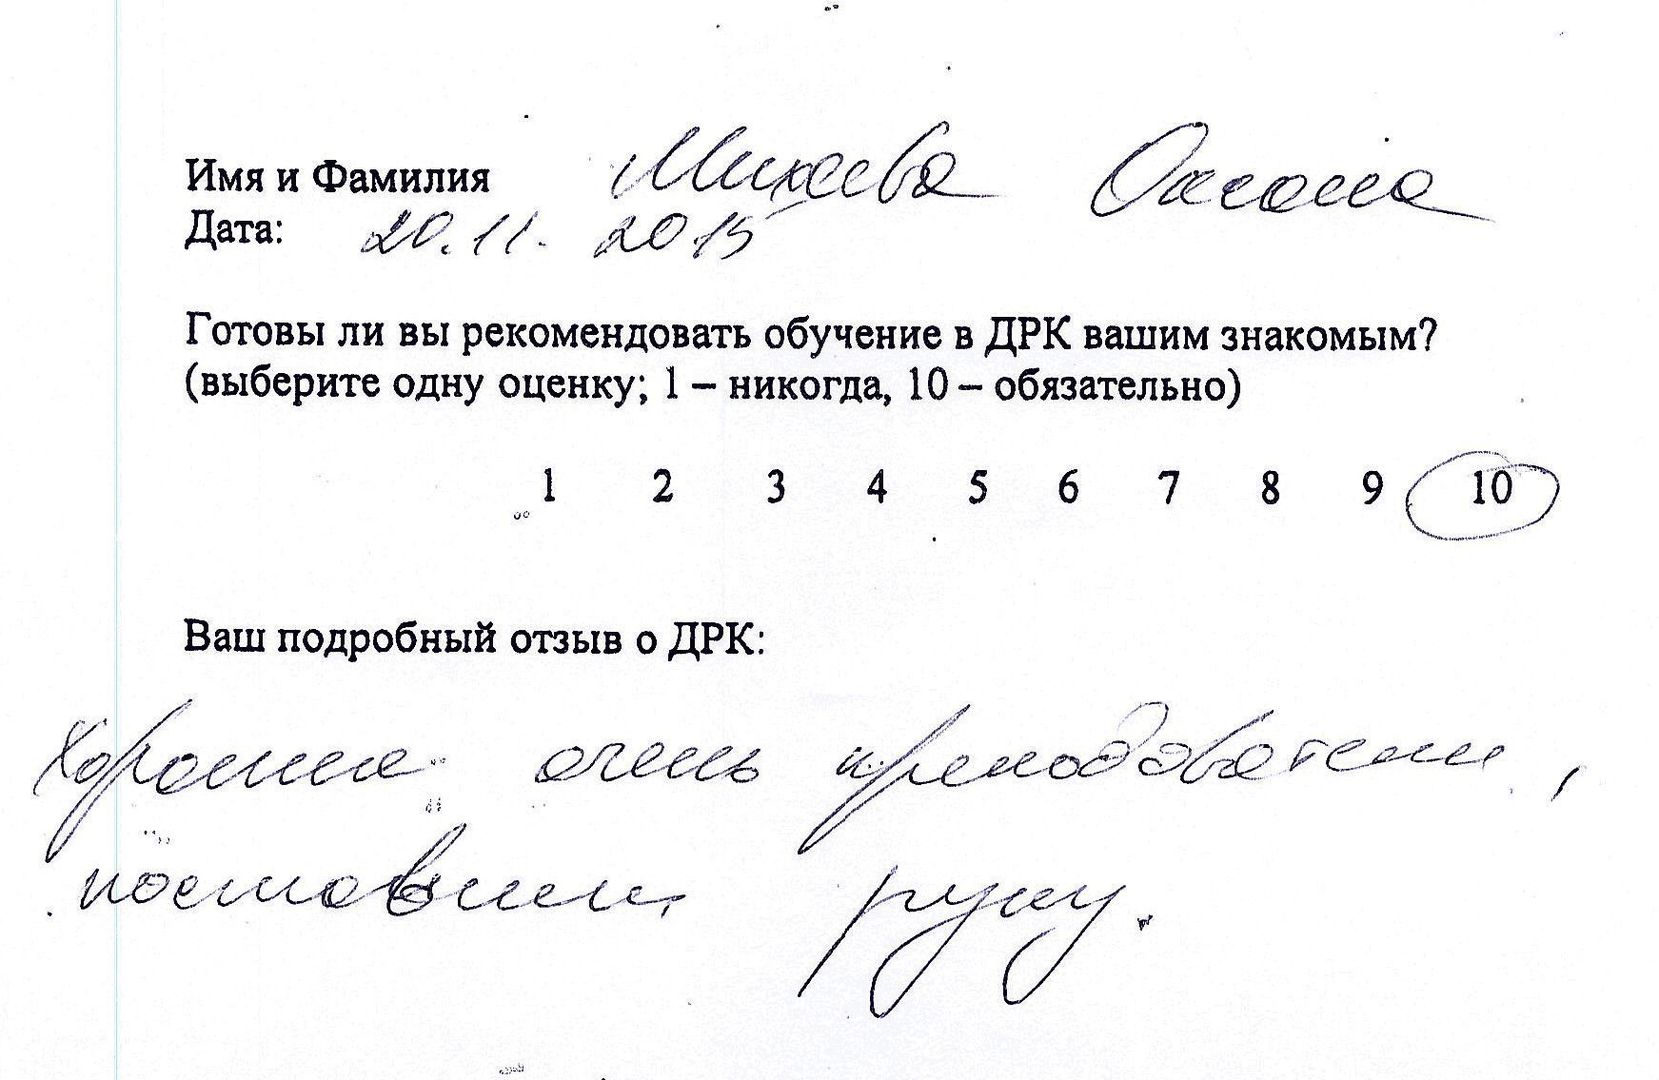 Имя и Фамилия Михеева Оксана
Дата: 20.11.2015
Готовы ли вы рекомендовать обучение в ДРК вашим знакомым?
(выберите одну оценку; 1 – никогда, 10 – обязательно)
1 2 3 4 5 6 7 8 9 10
Ваш подробный отзыв о ДРК:
Хорошие очень преподаватели,
поставили руку.